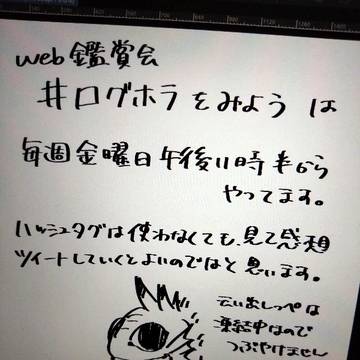 web鑑賞会
#ログホラをみよう は
毎週金曜日午後11時半から
やってます。
ハッシュタグは使わなくても、見て感想
ツイートしていくとよいのではと思います。
えいおしっぺは
凍結中なので
つぶやけません